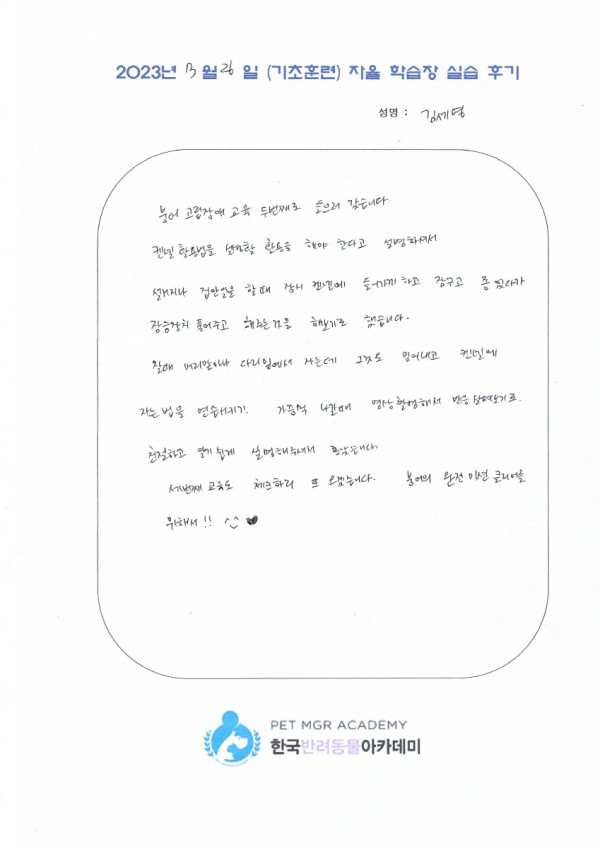 2023년 3월 26일 (기초훈련) 자율 학습장 실습 후기
성명 : 김세영
붕어 고립장애 교육 두번째로 들으러 갔습니다
켄넬 활용법을 설명할 활용을 해야 한다고 설명하셔서
설거지나 집안일을 할때 잠시 켄넬에 들어가게 하고 잠구고 좀 있다가
잠금장치 풀어주고 해주는걸 해보기로 했습니다.
잘때 머리맡이나 다리밑에서 자는데 그것도 밀어내고 켄넬에
자는법을 연습하기! 가끔씩 나갈때 영상촬영해서 반응 살펴보기로.
친절하고 알기 쉽게 설명해주셔서 좋았습니다.
세번째 교육도 체크하러 또 오겠습니다. 붕어의 완전 미션 클리어를
위해서!! ^^ ♥
PET MGR ACADEMY
한국반려동물아카데미